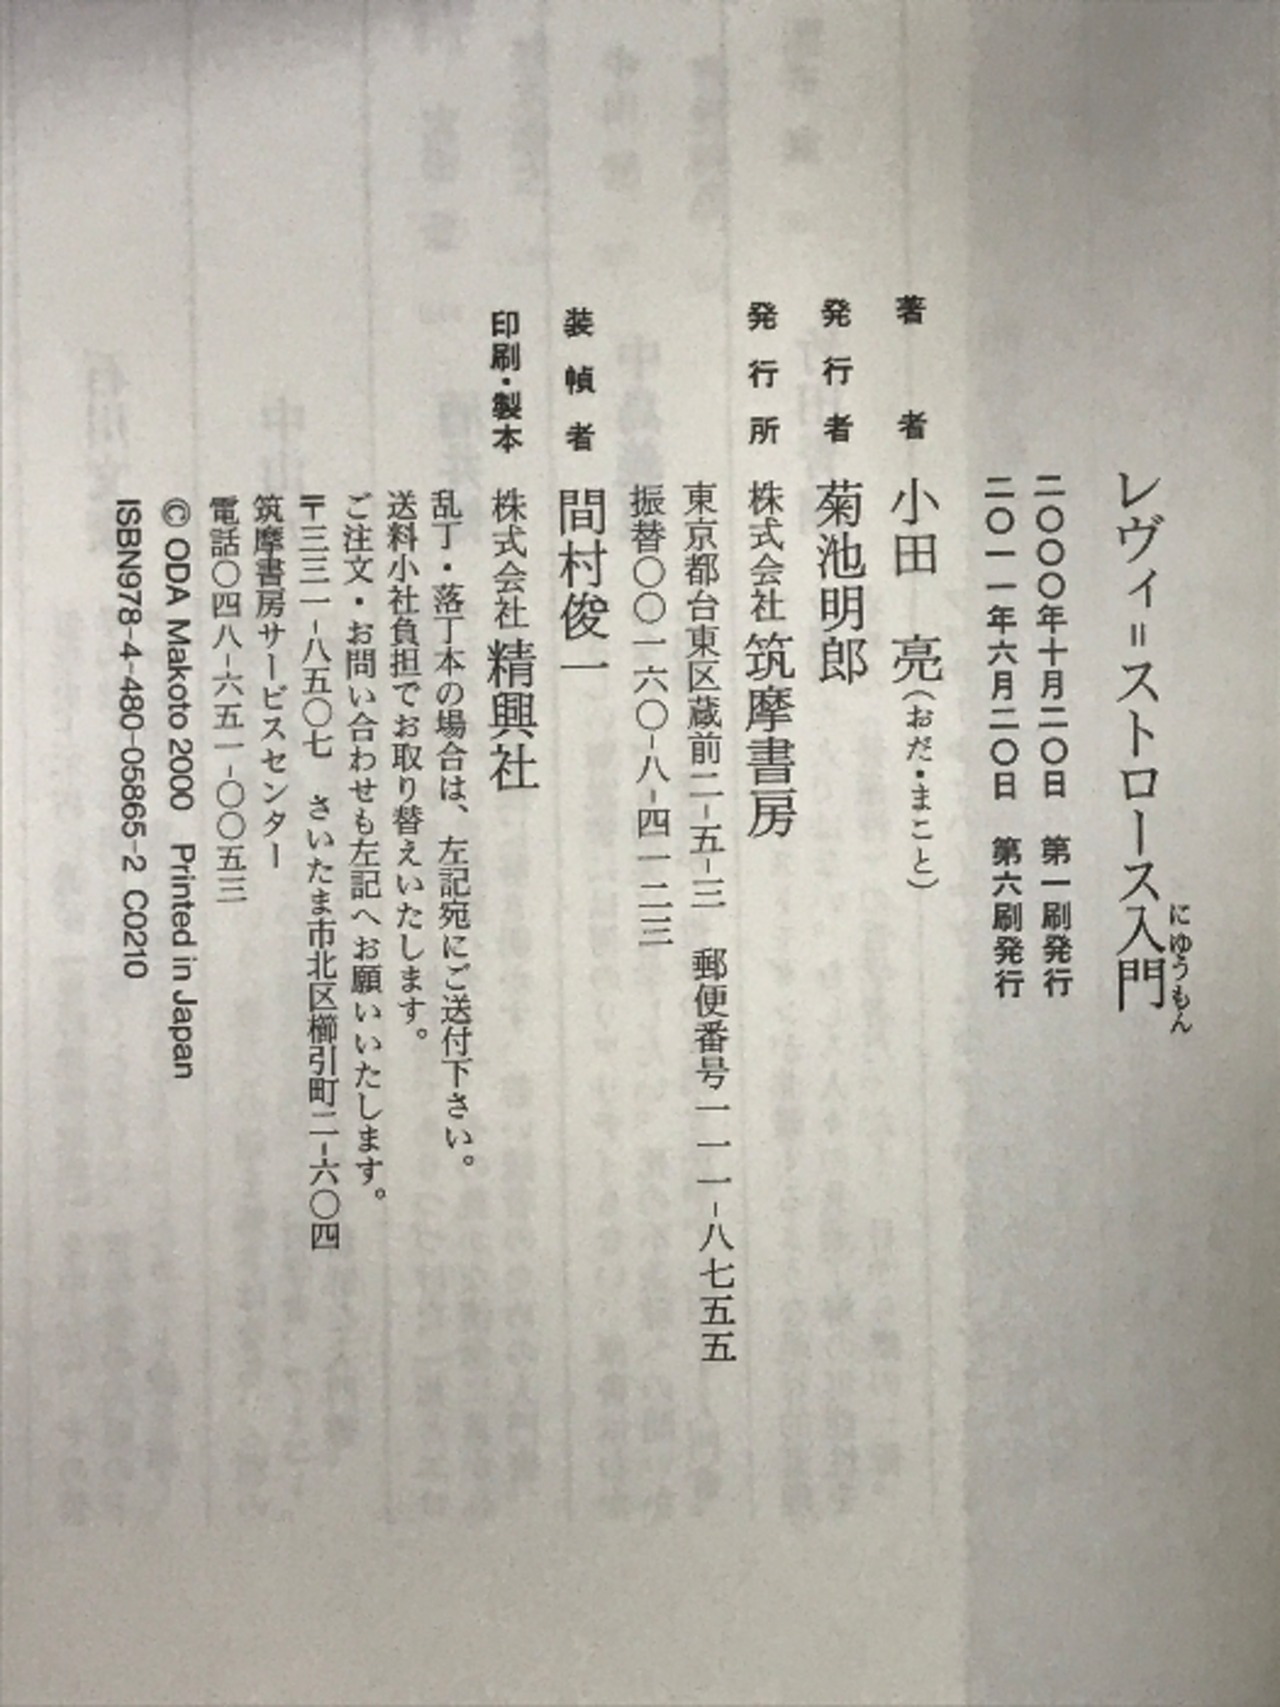 レヴィ=ストロース入門
にゅうもん
二〇〇〇年十月二〇日　第一刷発行
二〇一一年六月二〇日　第六刷発行
著者　小田　亮（おだ・まこと）
発行者　菊池明郎
発行所　株式会社 筑摩書房
東京都台東区蔵前二-五-三　郵便番号一一一-八七五五
振替〇〇一六〇-八-四一二三
装幀者　間村俊一
印刷・製本　株式会社 精興社
乱丁・落丁本の場合は、左記宛にご送付下さい。
送料小社負担でお取り替えいたします。
ご注文・お問い合わせも左記へお願いいたします。
〒三三一-八五〇七　さいたま市北区櫛引町二-六〇四
筑摩書房サービスセンター
電話〇四八-六五一-〇〇五三
© ODA Makoto 2000　Printed in Japan
ISBN978-4-480-05865-2 C0210